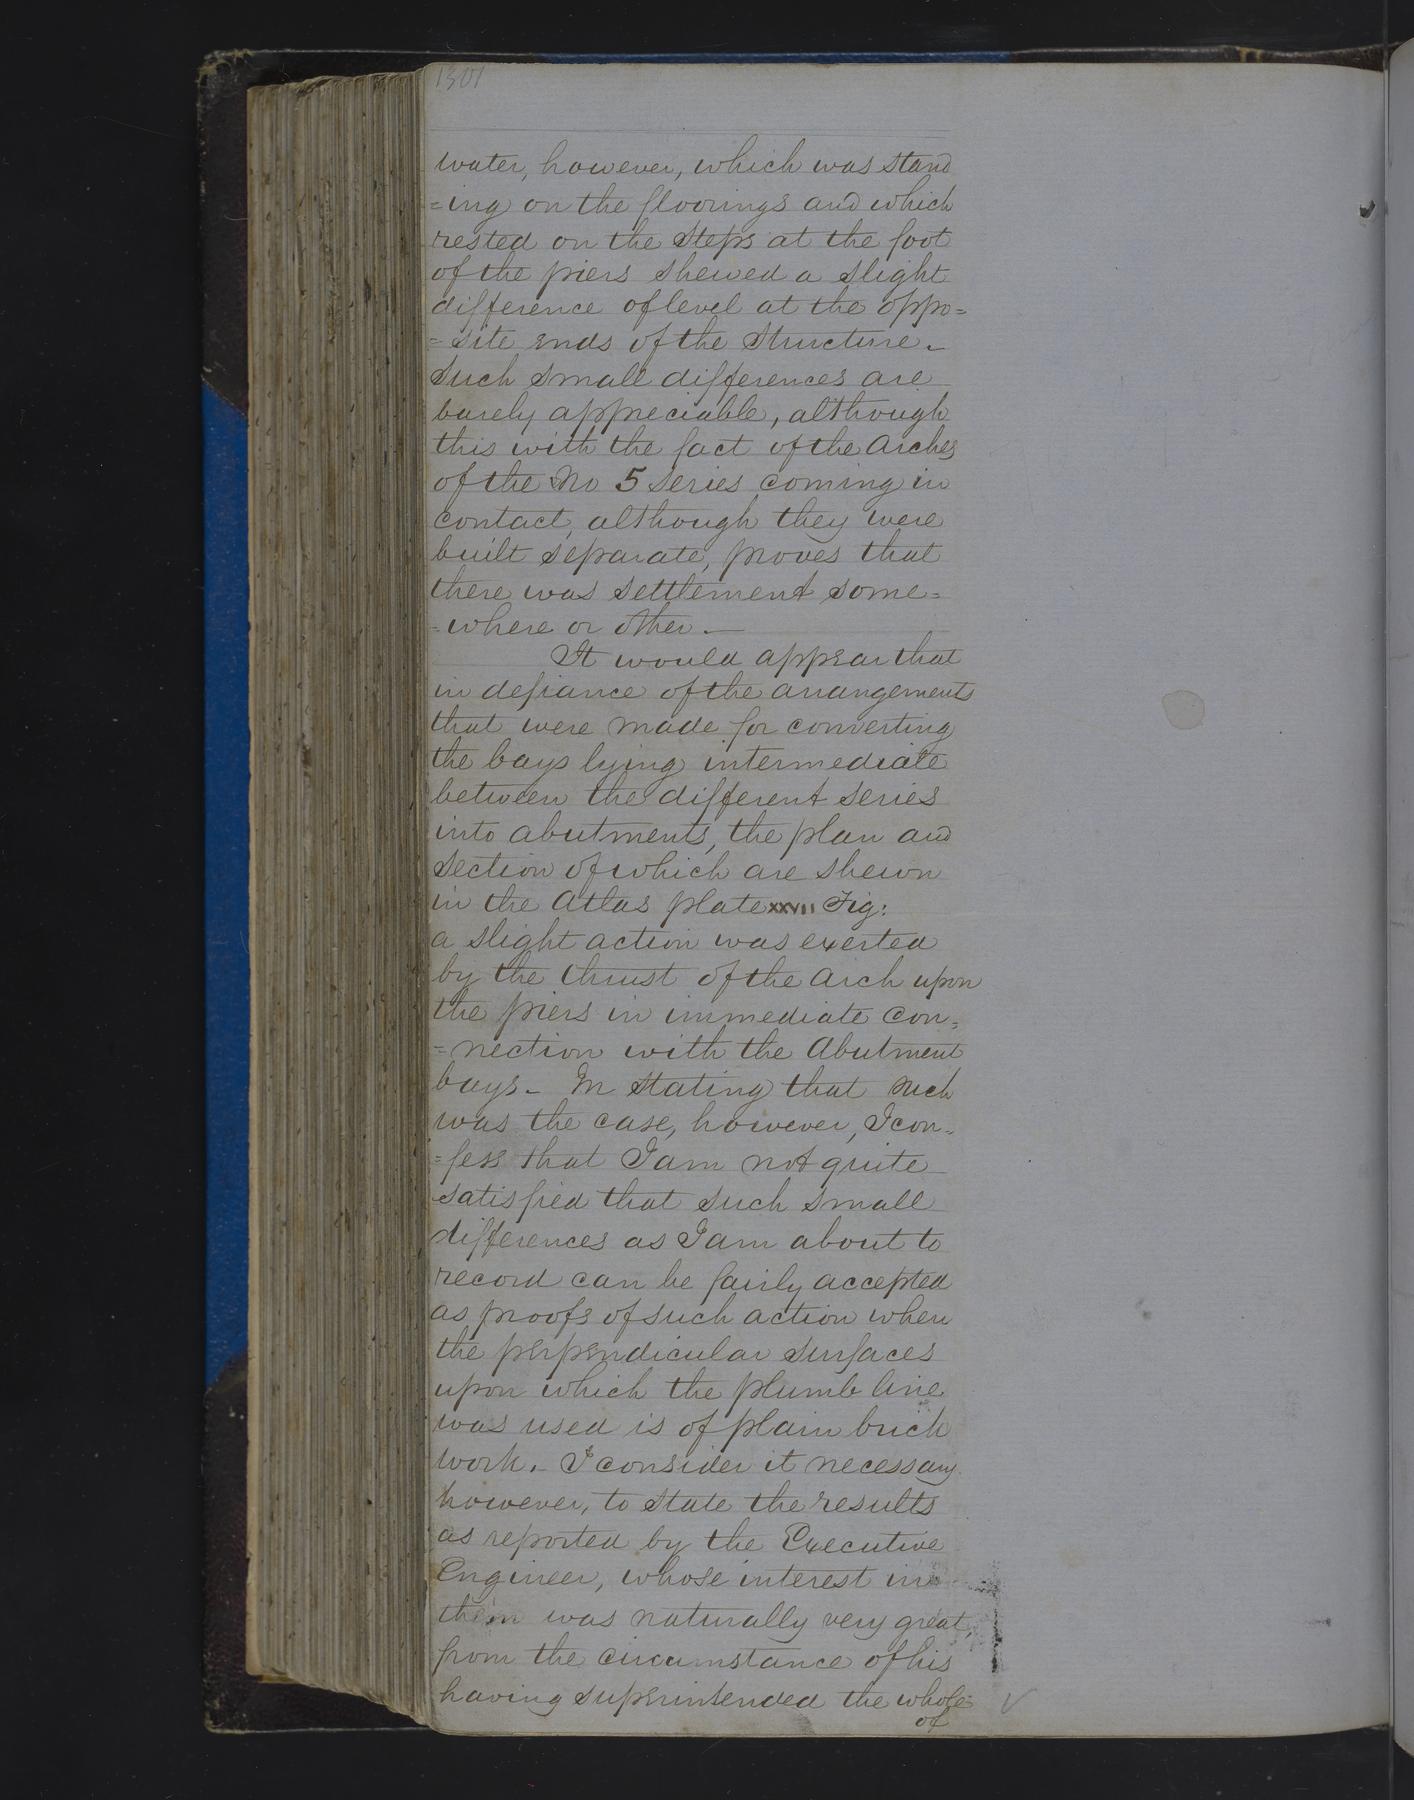 1301
water, however, which was stand
=ing on the floorings and which
rested on the steps at the foot
of the piers shewed a slight
difference of level at the oppo=
=site ends of the structure.
Such small differences are
barely appreciable, although
this with the fact of the arches
of the No 5 series coming in
contact, although they were
built separate, proves that
there was settlement some=
=where or other.—
It would appear that
in defiance of the arrangements
that were made for converting
the bays lying intermediate
between the different series
into abutments, the plan and
section of which are shewn
in the Atlas plate XXVII Fig:
a slight action was exerted
by the thrust of the arch upon
the piers in immediate con=
=nection with the Abutment
bays. In stating that such
was the case, however, I con=
=fess that I am not quite
satisfied that such small
differences as I am about to
record can be fairly accepted
as proofs of such action when
the perpendicular surfaces
upon which the plumb line
was used is of plain brick
work. I consider it necessary
however, to state the results
as reported by the Executive
Engineer, whose interest in
them was naturally very great,
from the circumstance of his
having superintended the whole
of